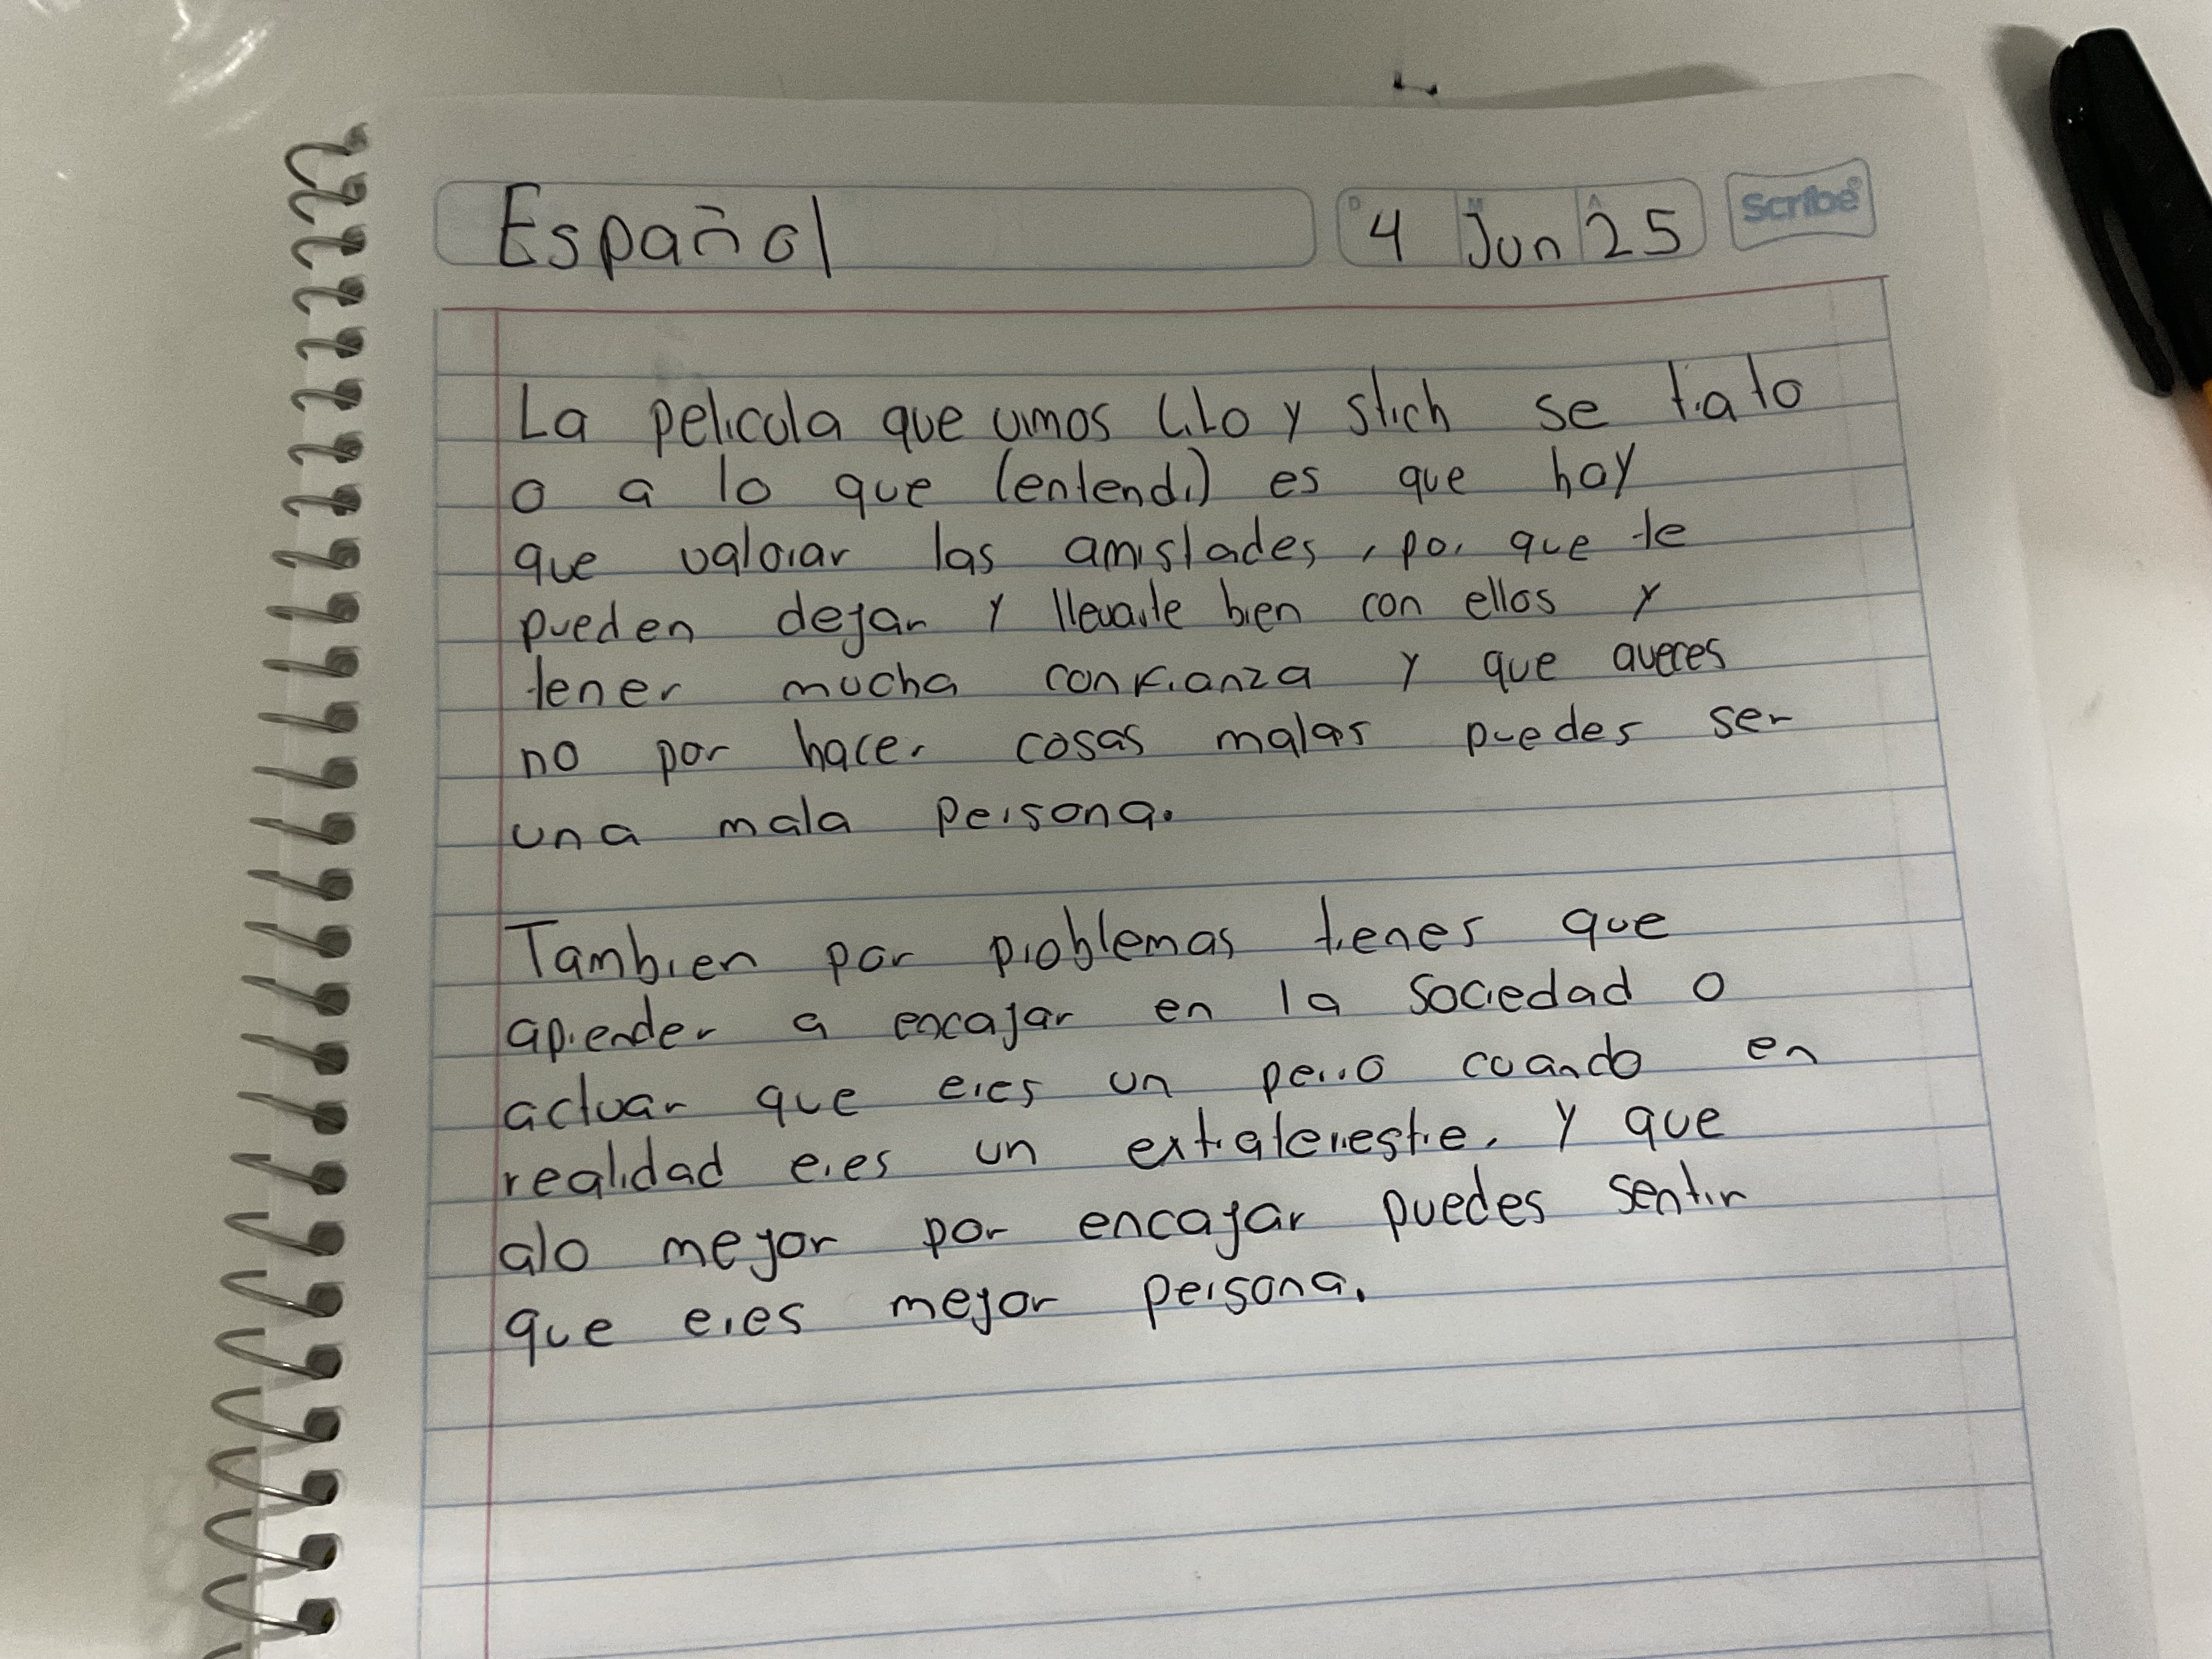 Español
D 4 M Jun A 25
Scribe®
La pelicula que vimos Lilo y stich se trato
o a lo que (entendi) es que hay
que valorar las amistades, por que te
pueden dejar y llevarte bien con ellos y
tener mucha confianza y que aveces
no por hacer cosas malas puedes ser
una mala persona.
Tambien por problemas tienes que
aprender a encajar en la sociedad o
actuar que eres un perro cuando en
realidad eres un extraterrestre. Y que
alo mejor por encajar puedes sentir
que eres mejor persona.